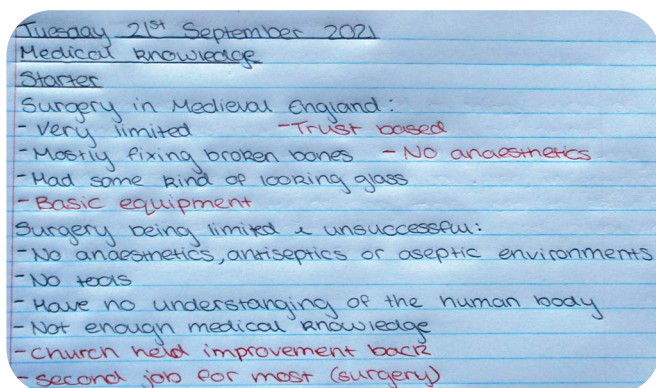 Tuesday 21st September 2021
Medical knowledge
Starter
Surgery in Medieval England:
- Very limited - Trust based
- Mostly fixing broken bones - No anaesthetics
- Had some kind of looking glass
- Basic equipment
Surgery being limited & unsuccessful:
- No anaesthetics, antiseptics or aseptic environments
- No tools
- Have no understanging of the human body
- Not enough medical knowledge
- Church held improvement back
- second job for most (surgery)